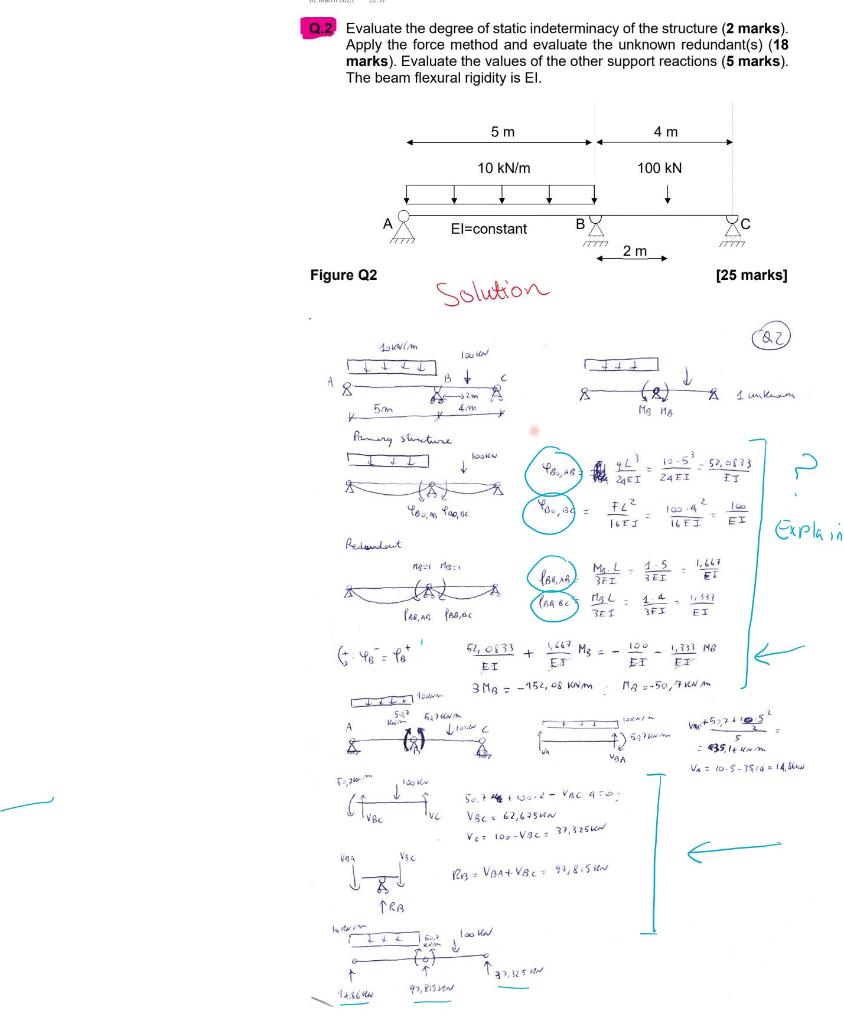 Q.2 Evaluate the degree of static indeterminacy of the structure (2 marks).
Apply the force method and evaluate the unknown redundant(s) (18
marks). Evaluate the values of the other support reactions (5 marks).
The beam flexural rigidity is EI.
5 m
4 m
10 kN/m
100 kN
A
EI=constant
B
C
2 m
Figure Q2
[25 marks]
Solution
Q2
10 kN/m
100 kN
A
B
C
2m
5m
4m
MB MB
1 unknown
Primary structure
100kN
φB0,AB φB0,BC
φB0,AB = qL³/24EI = 10·5³/24EI = 52,0833/EI
φB0,BC = FL²/16EI = 100·4²/16EI = 100/EI
?
Explain
Redundant
MB=1 MB=1
φBB,AB φBB,BC
φBB,AB = MB·L/3EI = 1·5/3EI = 1,667/EI
φBB,BC = MB·L/3EI = 1·4/3EI = 1,333/EI
φB⁻ = φB⁺
52,0833/EI + 1,667/EI MB = - 100/EI - 1,333/EI MB
3MB = -152,08 kNm ; MB = -50,7 kNm
10kN/m
50,7 kNm
50,7kNm
100kN
A
B
C
10kN/m
50,7kNm
VA
VBA
5
= 35,14 kNm
VA = 10·5-35,14 = 14,86kN
50,7kNm
100kN
VBC
VC
50.7 + 100·2 - VBC·4=0;
VBC = 62,675kN
VC = 100-VBC = 37,325kN
VBA
VBC
RB
RB = VBA+VBC = 97,815kN
10kN/m
50,7 kNm
100 kN
14,86kN
97,815kN
37,325 kN